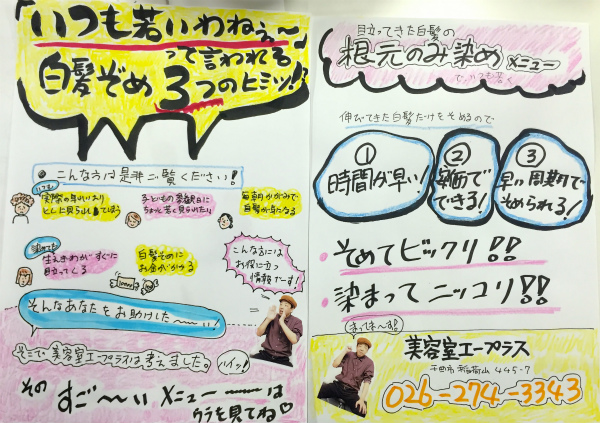 「いつも若いわねぇ〜」
って言われる
白髪ぞめ3つのヒミツ!
こんな方は是非ご覧ください!
いつも
実際の年れいより
としに見られてしまう
子どもの参観日に
ちょっと若く見られたい
毎朝かがみで
白髪が気になる
染めても
生えぎわがすぐに
目立ってくる
白髪ぞめに
お金がかかる
こんな方には
お役に立つ
情報でーす!
そんなあなたをお助けした〜い!
そこで美容室エープラスは考えました。
ハイッ!
その すご〜いメニューは
ウラを見てね♡
目立ってきた白髪の
根元のみ染めメニュー
で、いつも若く
伸びてきた白髪だけをそめるので
① 時間が早い!
② 
できる!
③ 早い周期で
染められる!
・そめてビックリ!!
・染まってニッコリ!!
まってま〜す!
美容室エープラス
千曲市 稲荷山 445-7
026-274-3343